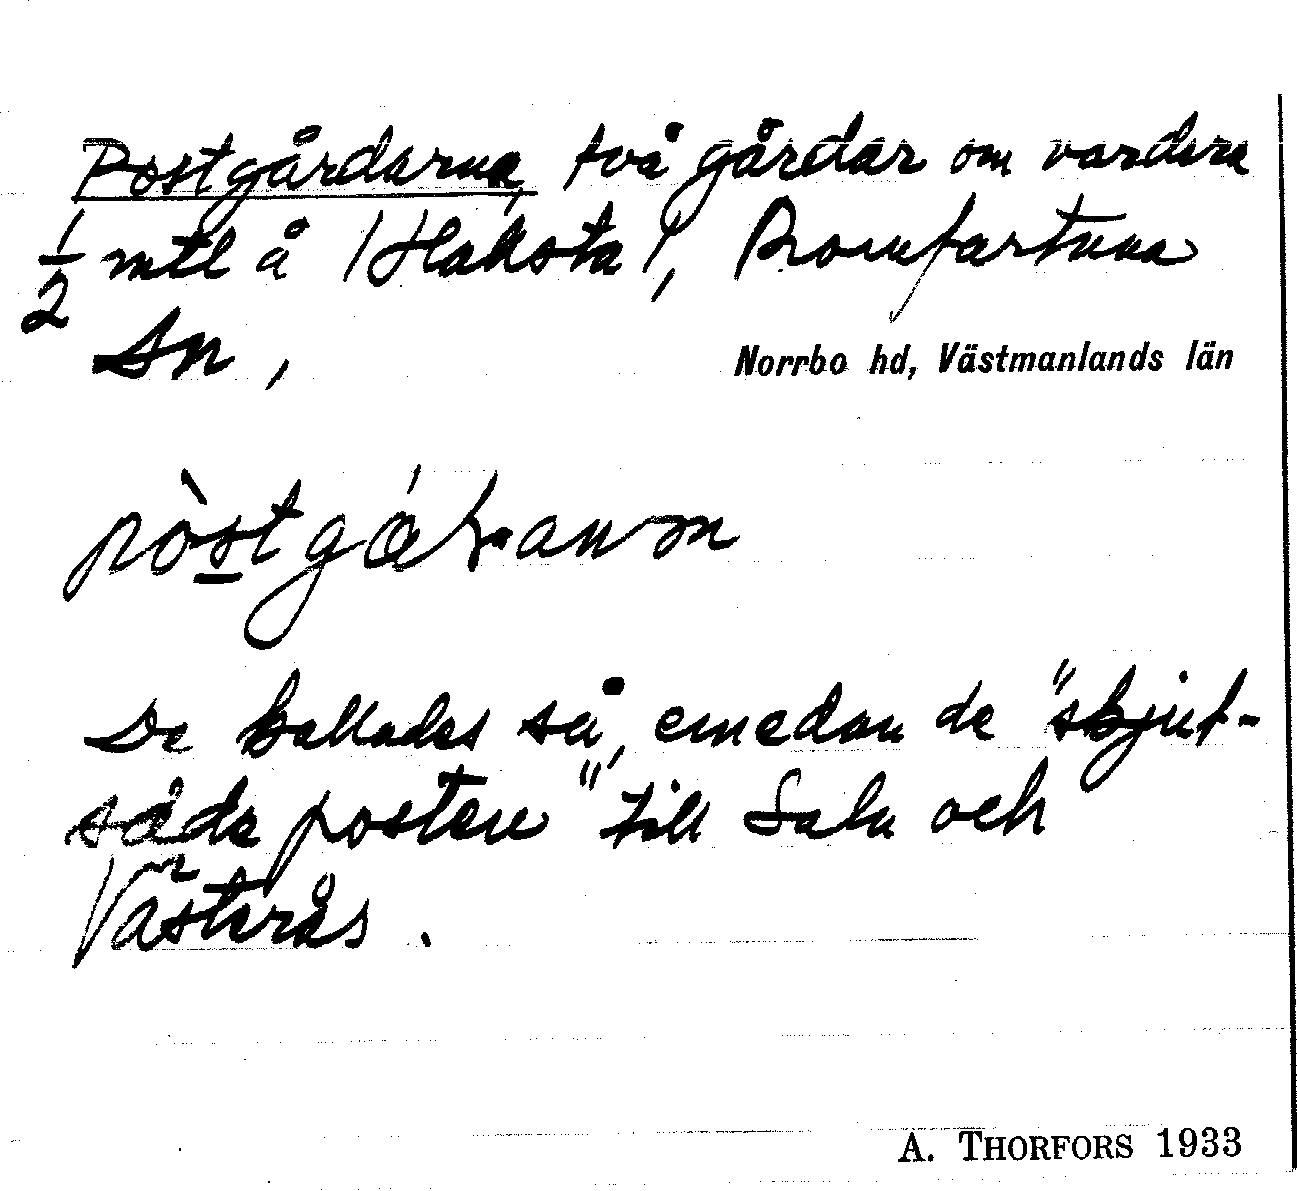 Postgårdarna, två gårdar om vardera
1/2 mtl å /Haksta/, Romfartuna
sn,
Norrbo hd, Västmanlands län
De kallades så, emedan de "skjut-
sade posten" till Sala och
Västerås.
A. THORFORS 1933